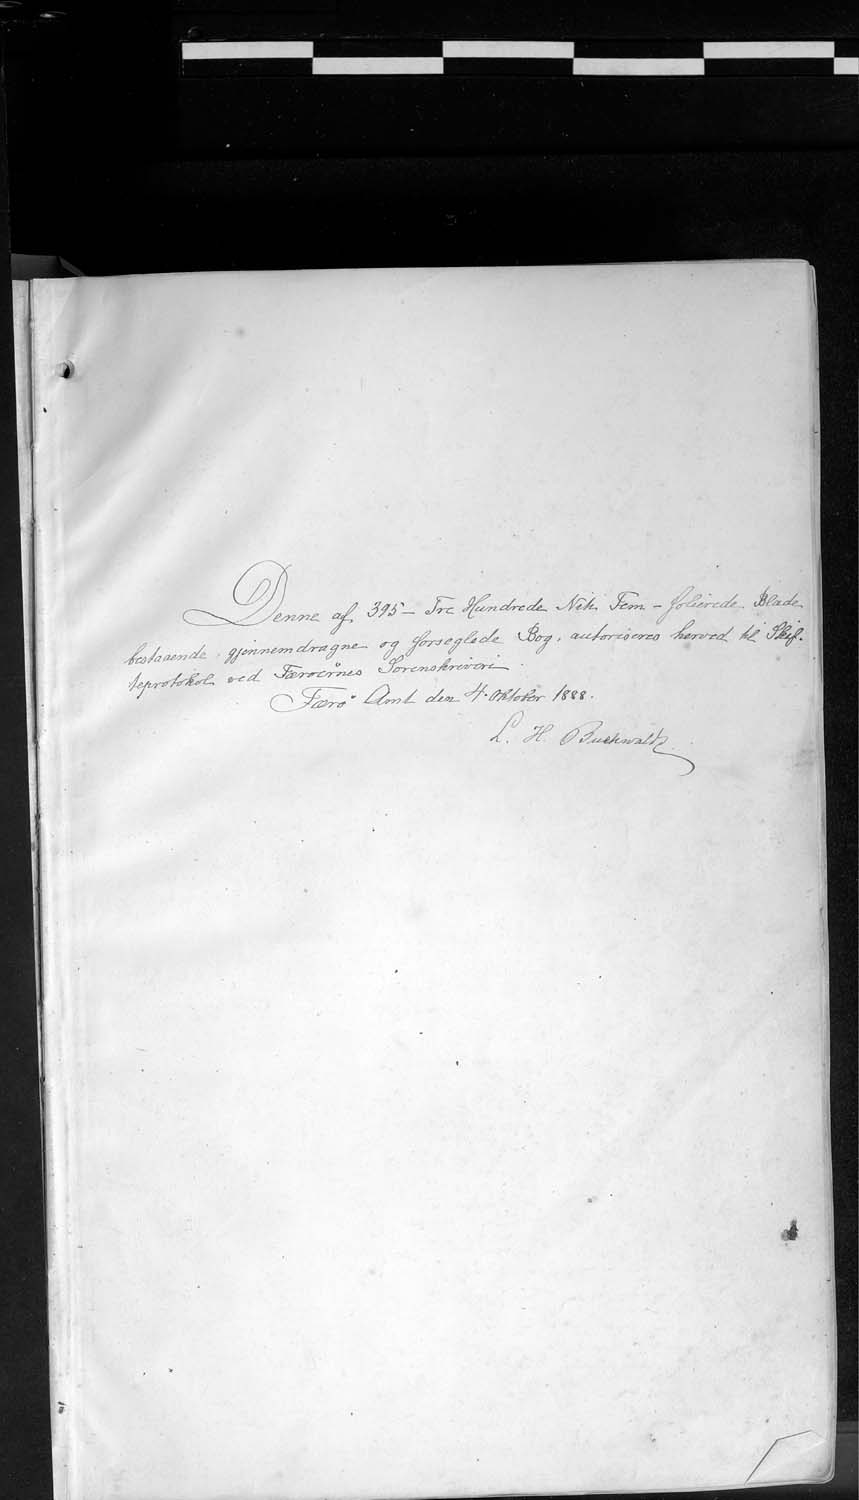 Denne af 395 – Tre Hundrede Niti Fem – folierede Blade
bestaaende, gjennemdragne og forseglede Bog, autoriseres herved til Skif-
teprotokol ved Færøernes Sorenskriveri.
Færø Amt den 4. Oktober 1888.
L. H. Buchwaldt